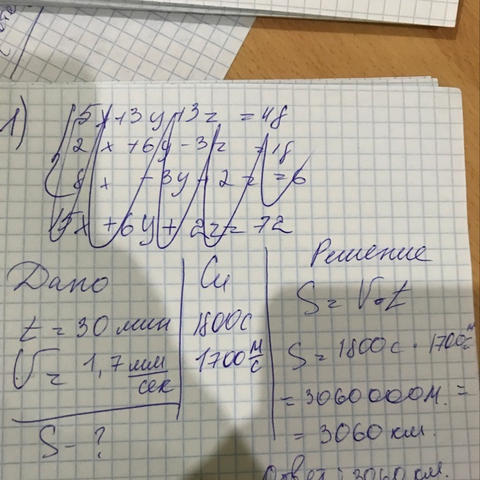 1) 5x+3y+3z = 48
2x +6y-3z = 18
8x -3y-2z = 6
5x+6y+2z= 72
Дано
t = 30 мин
V = 1,7 мм/сек
S - ?
Си
1800с
1700 м/с
Решение
S = V•t
S = 1800с · 1700 м/с
= 3060000м. =
= 3060 км.
Ответ: 3060 км.